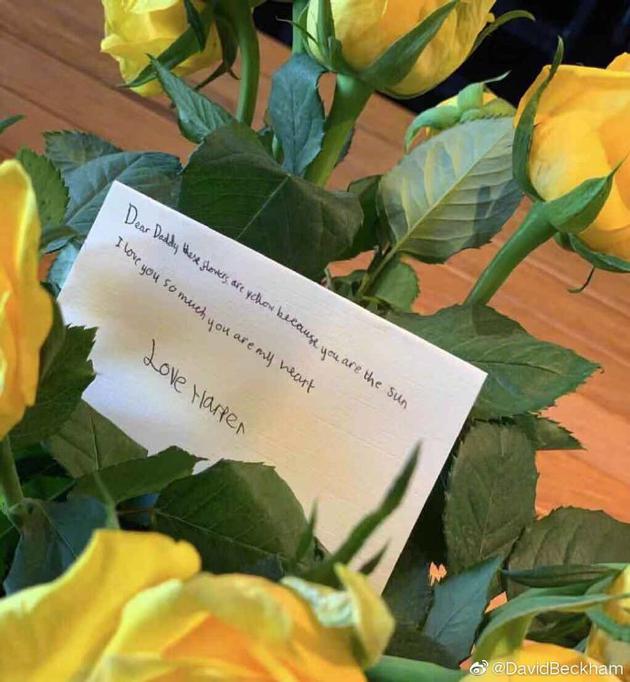 Dear Daddy these flowers are yellow because you are the sun
I love you so much you are my heart
Love Harper
@DavidBeckham